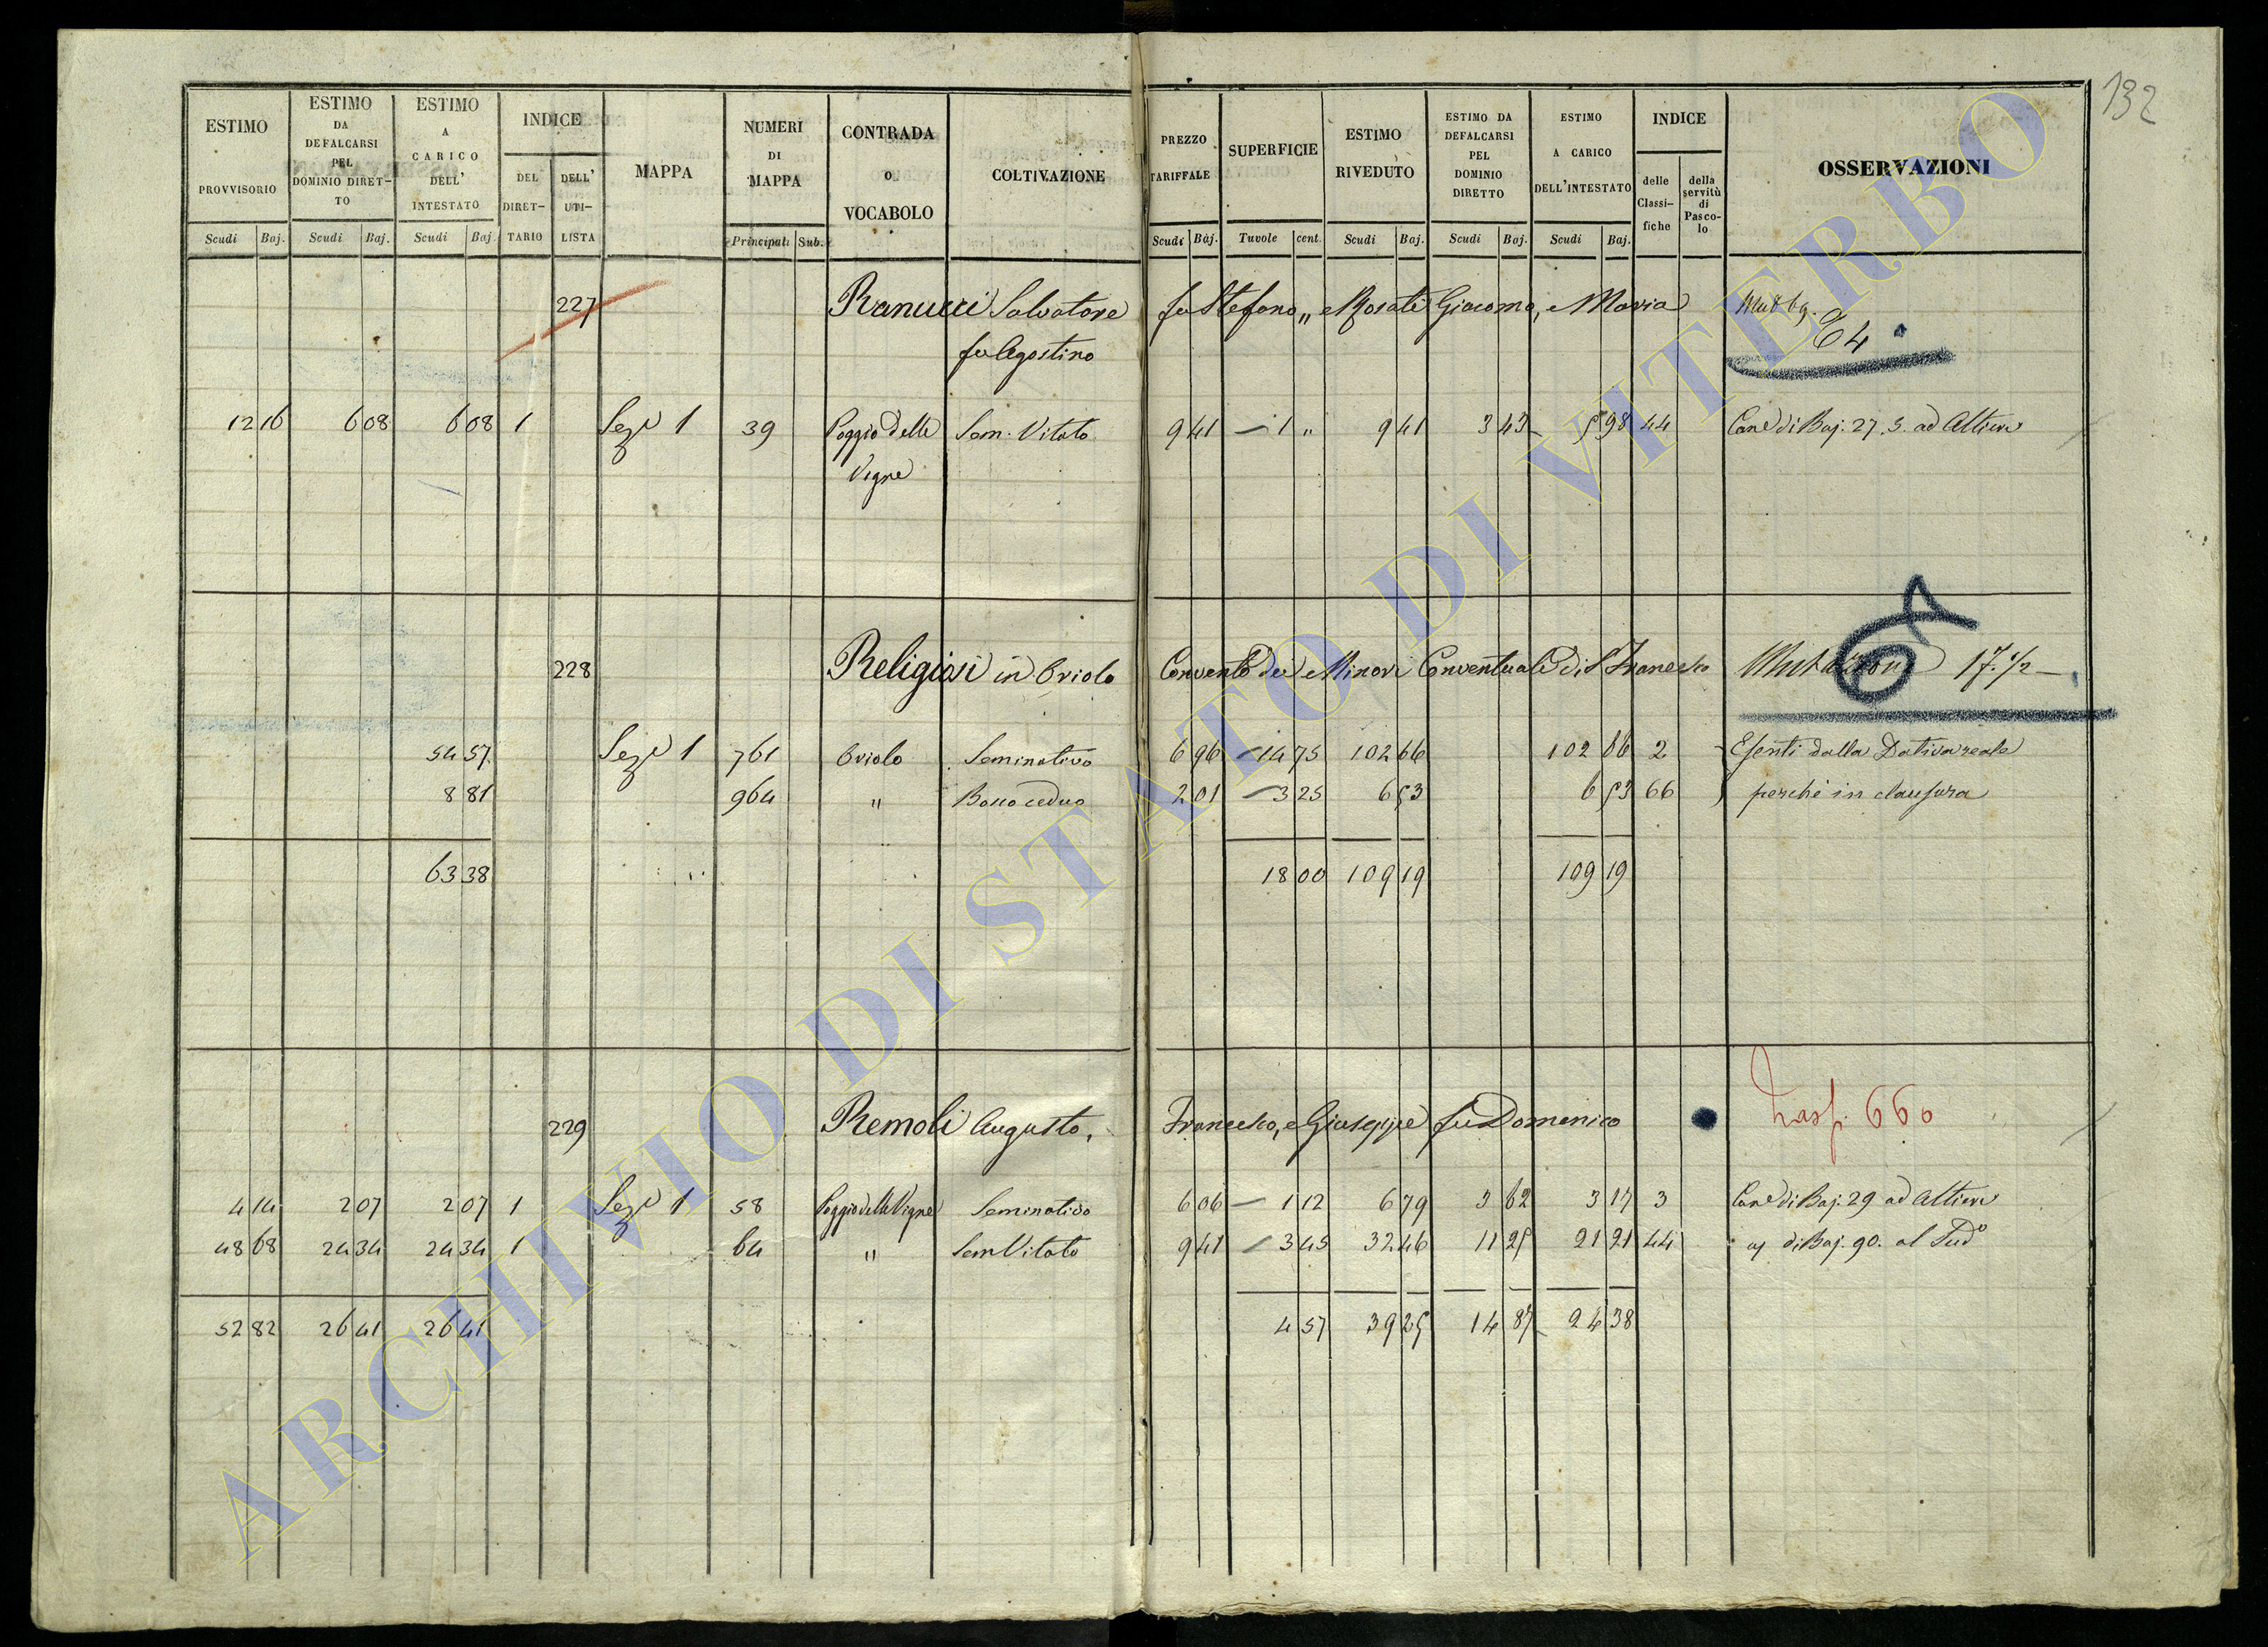 132
ESTIMO PROVVISORIO Scudi Baj.
ESTIMO DA DEFALCARSI PEL DOMINIO DIRET-TO Scudi Baj.
ESTIMO A CARICO DELL' INTESTATO Scudi Baj.
INDICE DEL DIRET-TARIO DELL' UTI-LISTA
MAPPA
NUMERI DI MAPPA Principali Sub.
CONTRADA O VOCABOLO
COLTIVAZIONE
PREZZO TARIFFALE Scudi Baj.
SUPERFICIE Tavole cent.
ESTIMO RIVEDUTO Scudi Baj.
ESTIMO DA DEFALCARSI PEL DOMINIO DIRETTO Scudi Baj.
ESTIMO A CARICO DELL'INTESTATO Scudi Baj.
INDICE delle Classi-fiche della servitù di Pasco-lo
OSSERVAZIONI
227 Ranucci Salvatore fu Stefano,, e Rosati Giacomo, e Maria
64
fu Agostino
12 16 6 08 6 08 1 Sezе 1 39 Poggio delle Sem. Vitato 9 41 1 " 9 41 3 43 5 98 44 Cane di Baj. 27.5. ad Altieri
Vigne
228 Religiosi in Oriolo Convento dei Minori Conventuali di S. Francesco Mutazione 17.1/2
54 57 Seze 1 761 Oriolo Seminativo 6 96 14 75 102 66 102 66 2 Esenti dalla Dativa reale
8 81 964 " Bosco ceduo 2 01 3 25 6 53 6 53 66 perchè in clausura
63 38 18 00 109 19 109 19
229 Remoli Augusto, Francesco, e Giuseppe fu Domenico Trasp. 660
4 14 2 07 2 07 1 Seze 1 58 Poggio delle Vigne Seminativo 6 06 1 12 6 79 3 62 3 17 3 Cane di Baj. 29 ad Altieri
48 68 24 34 24 34 1 64 " Sem Vitato 9 41 3 45 32 46 11 25 21 21 44 di Baj. 90. al Sudo
52 82 26 41 26 41 4 57 39 25 14 87 24 38
ARCHIVIO DI STATO DI VITERBO